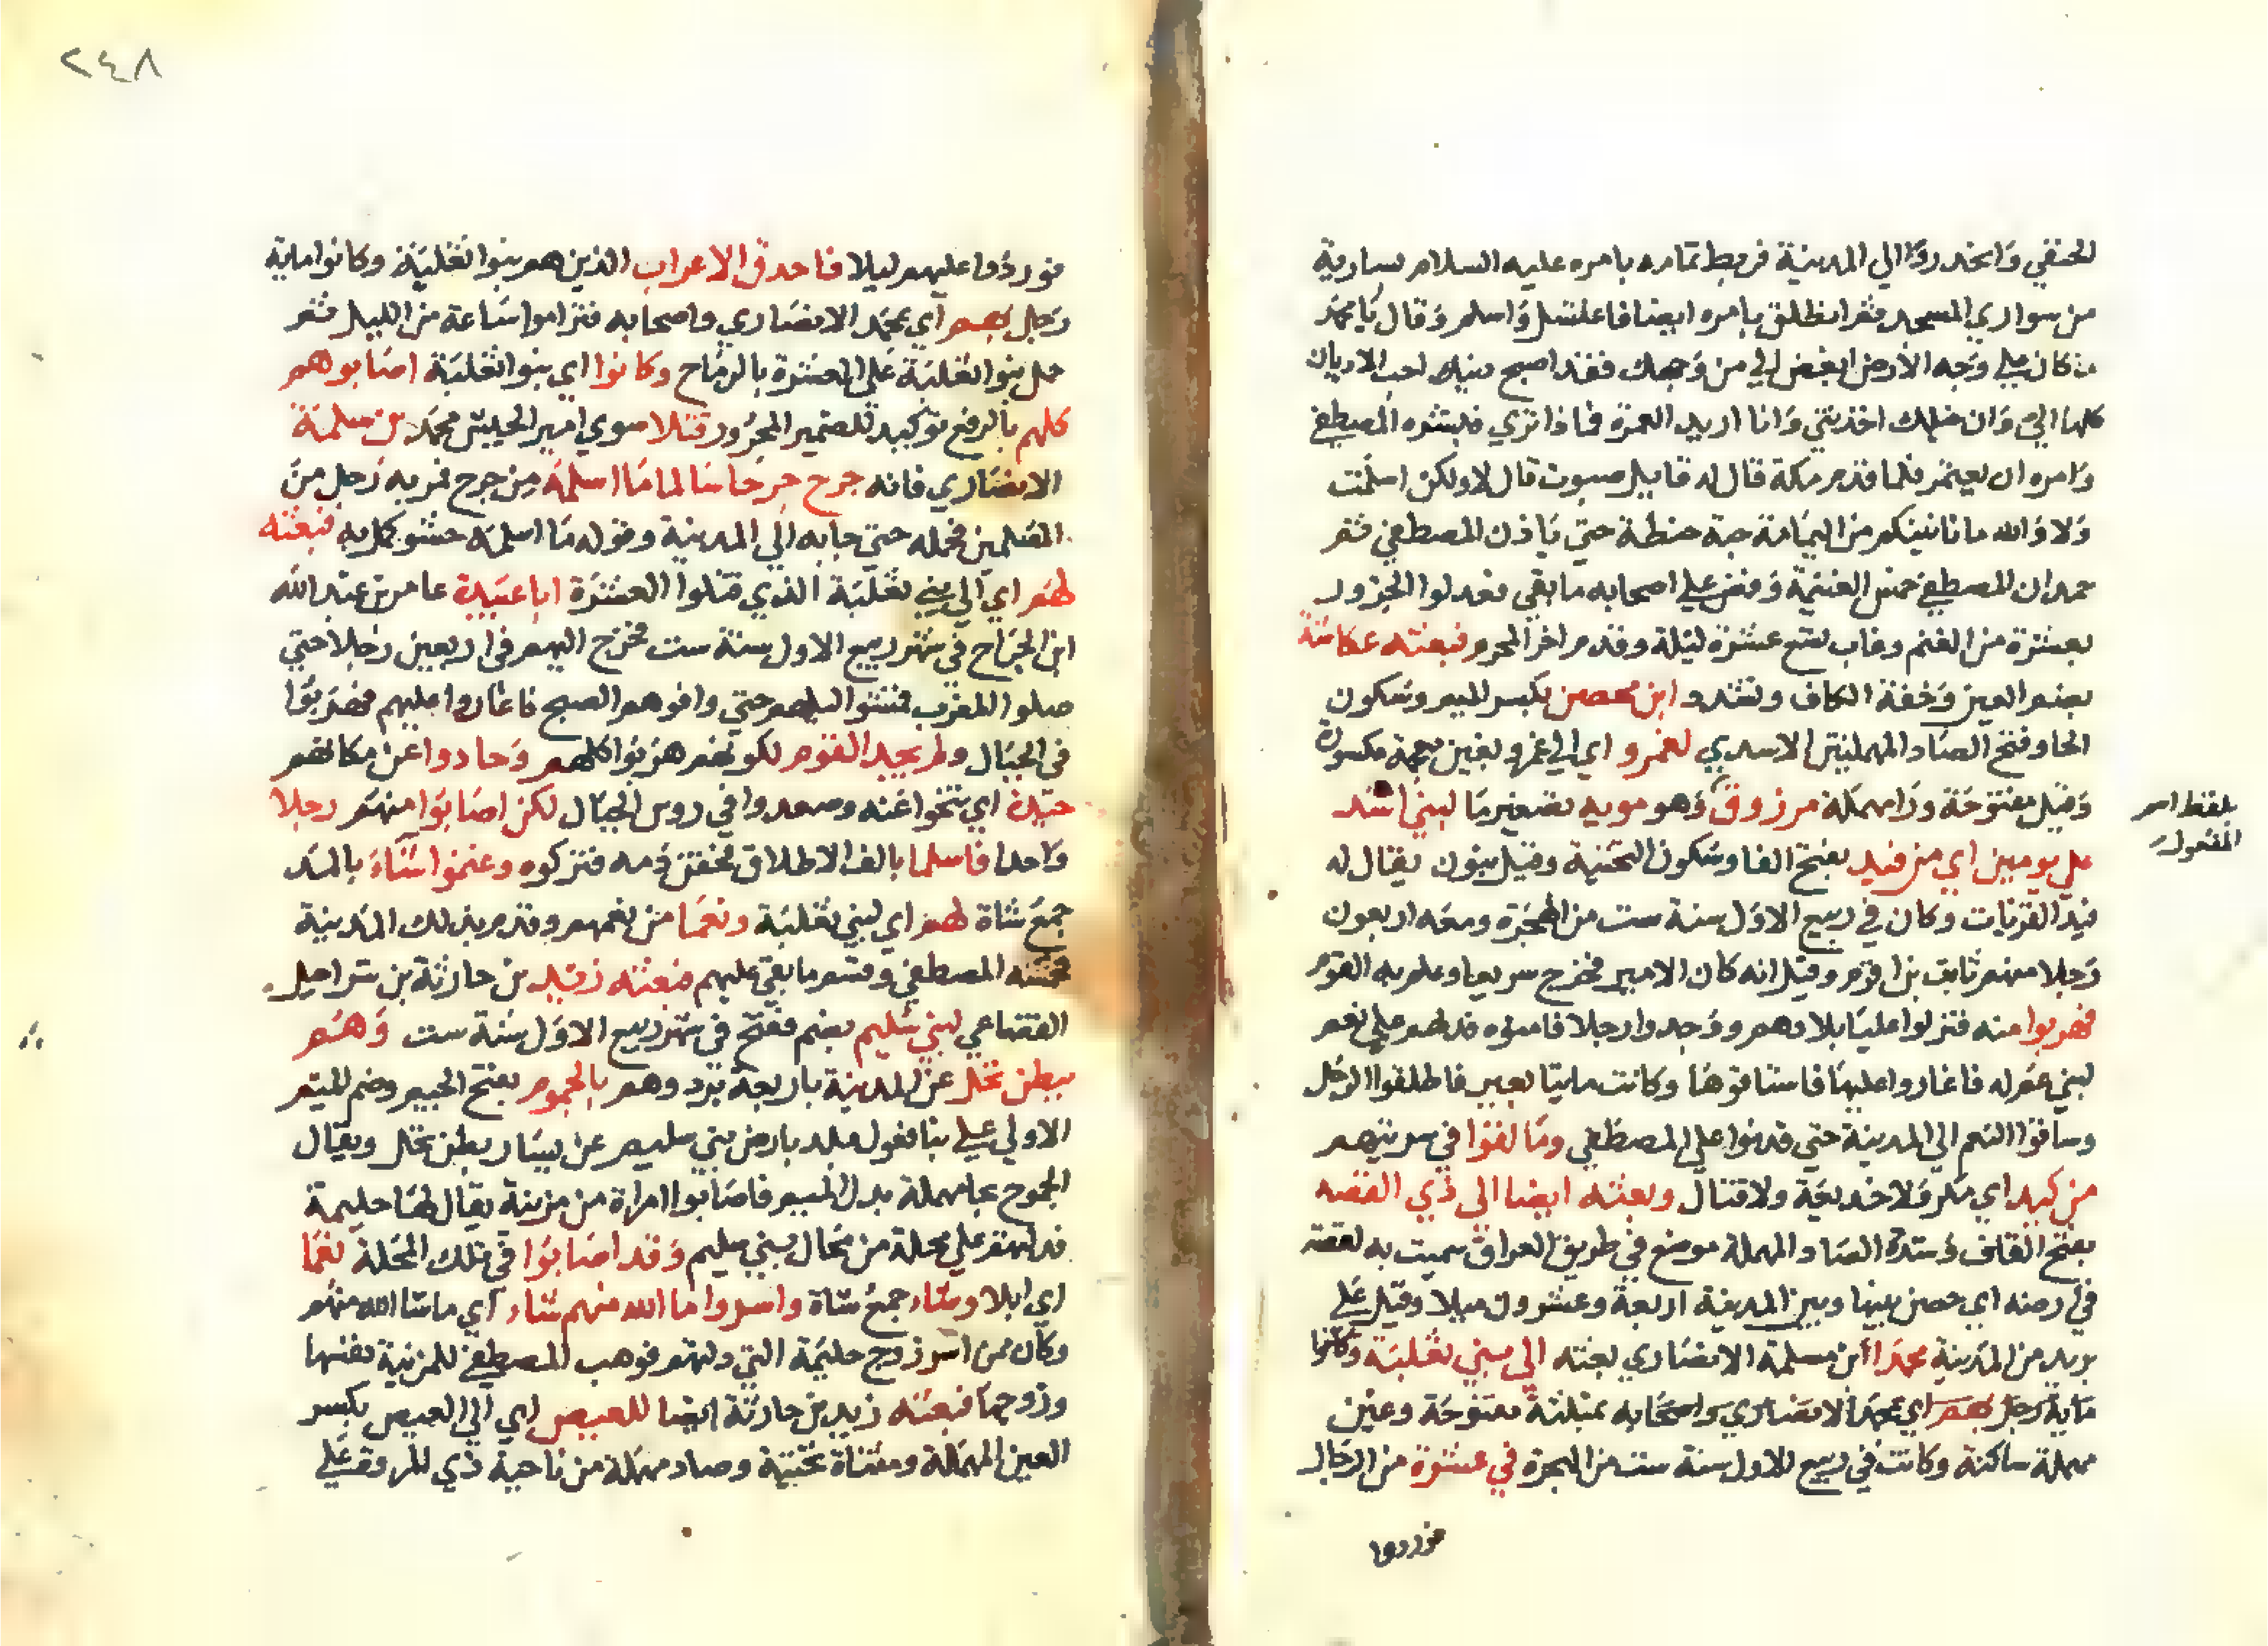 الحنفي وانحدروا الي المدينة فربط ثمامة بامره عليه السلام بسارية
من سواري المسجد ثم انطلق بامره ايضا فاغتسل واسلم وقال يا محمد
ما كان علي وجه الارض ابغض الي من وجهك فقد اصبح دينك احب الاديان
كلها الي وان خيلك اخذتني وانا اريد العمرة فماذا تري فبشره المصطفي
وامره ان يعتمر فلما قدم مكة قال له قايل صبوت قال لا ولكن اسلمت
ولا والله ما تاتينكم من اليمامة حبة حنطة حتي ياذن المصطفي ثم
ان المصطفي خمس الغنيمة وفض علي اصحابه ما بقي فعدلوا الجزور
بعشرة من الغنم وغاب تسع عشرة ليلة وقدم اخر المحرم فبعثه عكاشة
بضم العين وخفة الكاف وتشدد ابن محصن بكسر الميم وسكون
الحا وفتح الصاد المهملتين الاسدي لغمرو اي الي غمرو بغين معجمة مكسورة
وقيل مفتوحة ورا مهملة مرزوق وهو مويه تصغير ما لبني اسد
علي يومين اي من فيد بفتح الفا وسكون التحتية وقيل بنون يقال له
فيد القريات وكان في ربيع الاول سنة ست من الهجرة ومعه اربعون
رجلا منهم ثابت بن اقرم وقيل انه كان الامير فخرج سريعا وعلم به القوم
فهربوا منه فنزلوا عليا بلادهم ووجدوا رجلا فامنوه فدلهم علي نعم
لبني عم له فاغاروا عليها فاستاقوها وكانت مايتا بعير فاطلقوا الرجل
وساقوا النعم الي المدينة حتي قدموا علي المصطفي وما لقوا في سريتهم
من كيد اي مكر ولا خديعة ولا قتال وبعثه ايضا الي ذي القصه
بفتح القاف وشدة الصاد المهملة موضع في طريق العراق سميت به لقصة
في ارضه اي حصن بينها وبين المدينة اربعة وعشرون ميلا وقيل علي
بريد من المدينة محمدا ابن مسلمة الانصاري بعثه الي بني ثعلبة وكانوا
ماية رجل بهم اي محمد الانصاري واصحابه بمثلثة مفتوحة وعين
مهملة ساكنة وكانت في ربيع الاول سنة ست من الهجرة في عشرة من الرجال
فوردوا
بلفظ اسم
المفعول
٢٤٨
فوردوا عليهم ليلا فاحدق الاعراب الذين هم بنوا ثعلبة وكانوا ماية
رجل بهم اي محمد الانصاري واصحابه فتراموا ساعة من الليل ثم
حمل بنوا ثعلبة علي العشرة بالرماح وكانوا اي بنوا ثعلبة اصابوهم
كلهم بالرفع توكيد للضمير المجرور قتلا سوي امير الجيش محمد بن مسلمة
الانصاري فانه جرح جرحا سالما ما اسلمه من جرح فمر به رجل من
المسلمين فحمله حتي جا به الي المدينة وقوله ما اسلمه حشو كمل به فبعثه
لهم اي الي بني ثعلبة الذي قتلوا العشرة ابا عبيدة عامر بن عبد الله
ابن الجراح في شهر ربيع الاول سنة ست فخرج اليهم في اربعين رجلا حتي
صلوا المغرب فمشوا اليهم حتي وافوهم الصبح فاغاروا عليهم فهربوا
في الجبال ولم يجد القوم لكونهم هربوا كلهم وحادوا عن مكانهم
حيدة اي تنحوا عنه وصعدوا في روس الجبال لكن اصابوا منهم رجلا
واحدا فاسلما بالف الاطلاق فحقن دمه فتركوه وغنموا شاء بالمد
جمع شاة لهم اي لبني ثعلبة ونعما من نعمهم وقدم بذلك المدينة
فخمسه المصطفي وقسم ما بقي عليهم فبعثه زيد بن حارثة بن شراحيل
القضاعي لبني سليم بضم ففتح في شهر ربيع الاول سنة ست وهم
ببطن نخل عن المدينة باربعة برد وهم بالجموم بفتح الجيم وضم الميم
الاولي علي بنا فعول بلد بارض بني سليم عن يسار بطن نخل ويقال
الجموح بحا مهملة بدل الميم فاصابوا امراة من مزينة يقال لها حليمة
فدلتهم علي محلة من محال بني سليم وقد اصابوا في تلك المحلة نعما
اي ابلا وشاء جمع شاة واسروا ما الله منهم شاء اي ما شا الله منهم
وكان ممن اسر زوج حليمة التي دلتهم فوهب المصطفي للمزنية نفسها
وزوجها فبعثه زيد بن حارثة ايضا للعيص اي الي العيص بكسر
العين المهملة ومثناة تحتية وصاد مهملة من ناحية ذي المروة علي